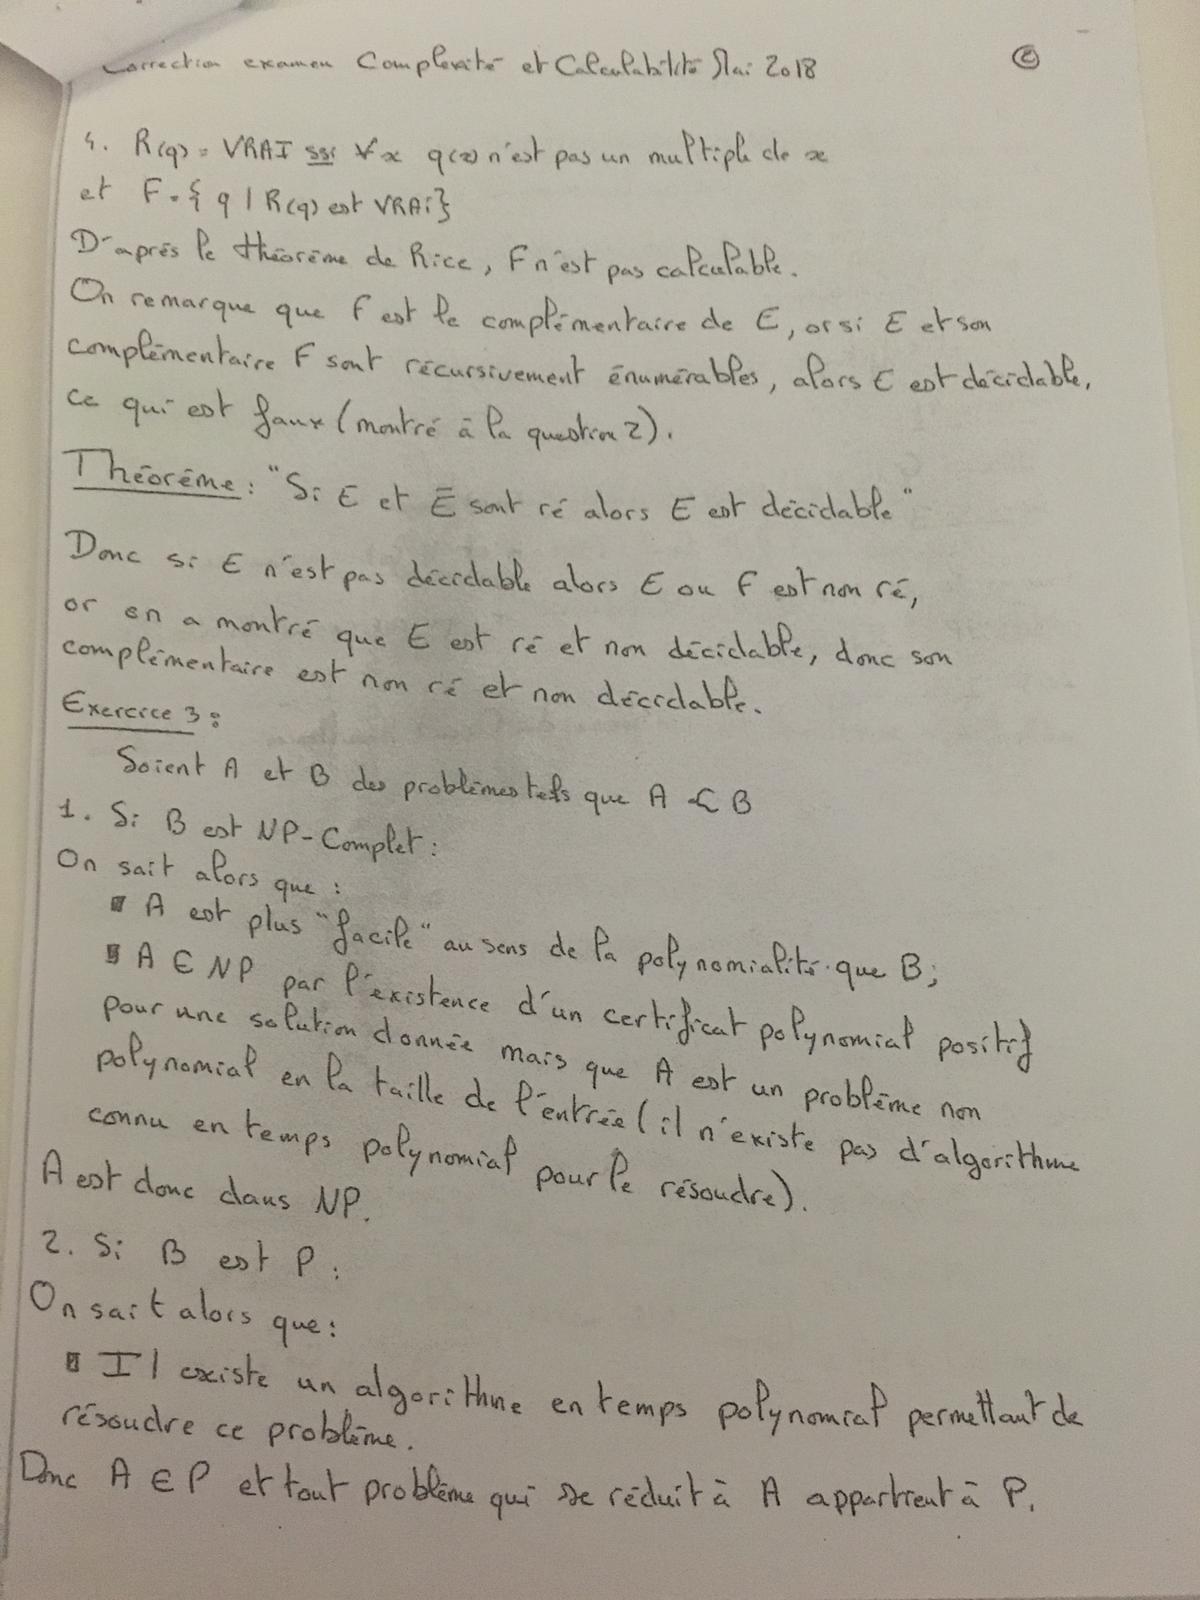 Correction examen Complexité et Calculabilité Mai 2018 ②
4. R(q) = VRAI ssi ∀x q(x) n'est pas un multiple de x
et F = { q | R(q) est VRAi}
D'après le théorème de Rice, F n'est pas calculable.
On remarque que F est le complémentaire de E, or si E et son
complémentaire F sont récursivement énumérables, alors E est décidable,
ce qui est faux (montré à la question 2).
Théorème : "Si E et Ē sont ré alors E est décidable"
Donc si E n'est pas décidable alors E ou F est non ré,
or on a montré que E est ré et non décidable, donc son
complémentaire est non ré et non décidable.
Exercice 3 :
Soient A et B des problèmes tels que A ≤ B
1. Si B est NP-Complet :
On sait alors que :
▪ A est plus "facile" au sens de la polynomialité que B;
▪ A ∈ NP par l'existence d'un certificat polynomial positif
pour une solution donnée mais que A est un problème non
polynomial en la taille de l'entrée (il n'existe pas d'algorithme
connu en temps polynomial pour le résoudre).
A est donc dans NP.
2. Si B est P :
On sait alors que :
▪ Il existe un algorithme en temps polynomial permettant de
résoudre ce problème.
Donc A ∈ P et tout problème qui se réduit à A appartient à P.